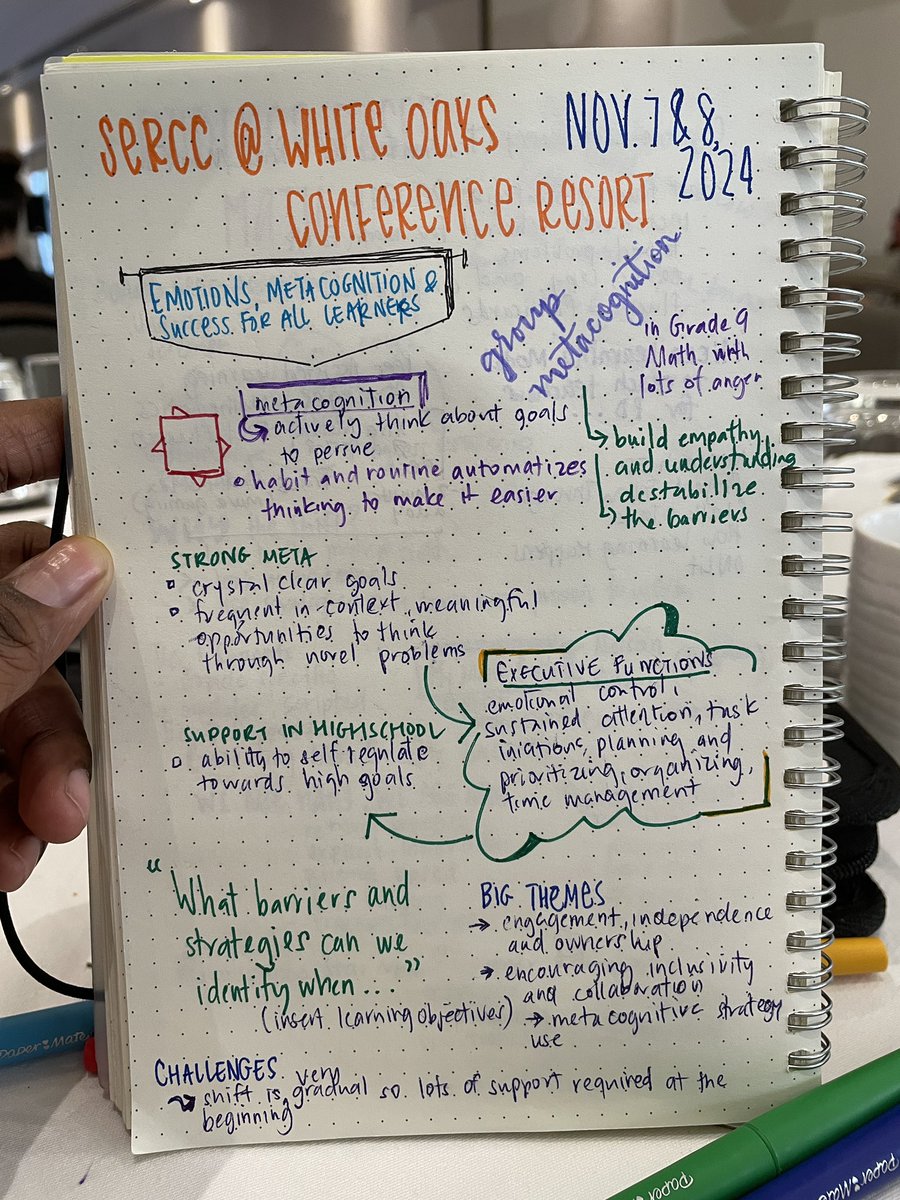 SERCC @ WHITE OAKS
CONFERENCE RESORT
NOV. 7 & 8,
2024
EMOTIONS, METACOGNITION &
SUCCESS FOR ALL LEARNERS
group
metacognition
in Grade 9
Math with
lots of anger
build empathy
and understanding
destabilize
the barriers
metacognition
actively think about goals
to persue
habit and routine automatizes
thinking to make it easier
STRONG META
crystal clear goals
frequent in-context, meaningful
opportunities to think
through novel problems
EXECUTIVE FUNCTIONS
emotional control,
sustained attention, task
iniations, planning and
prioritizing, organizing,
time management
SUPPORT IN HIGHSCHOOL
ability to self regulate
towards high goals
"What barriers and
strategies can we
identify when..."
(insert learning objectives)
BIG THEMES
→ engagement, independence
and ownership
→ encouraging inclusivity
and collaboration
→ metacognitive strategy
use
CHALLENGES
shift is very gradual so lots of support required at the
beginning
Paper Mate
Paper Mate
Paper Mate